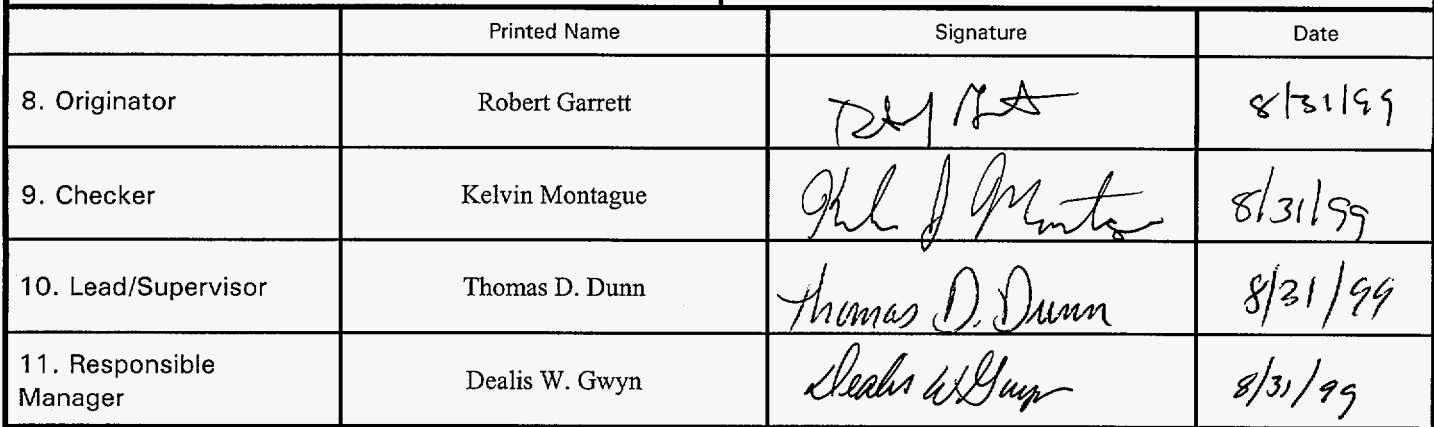 Printed Name Signature Date
8. Originator Robert Garrett 8/31/99
9. Checker Kelvin Montague Kel J Montag 8/31/99
10. Lead/Supervisor Thomas D. Dunn Thomas D. Dunn 8/31/99
11. Responsible
Manager Dealis W. Gwyn Dealis W Gwyn 8/31/99